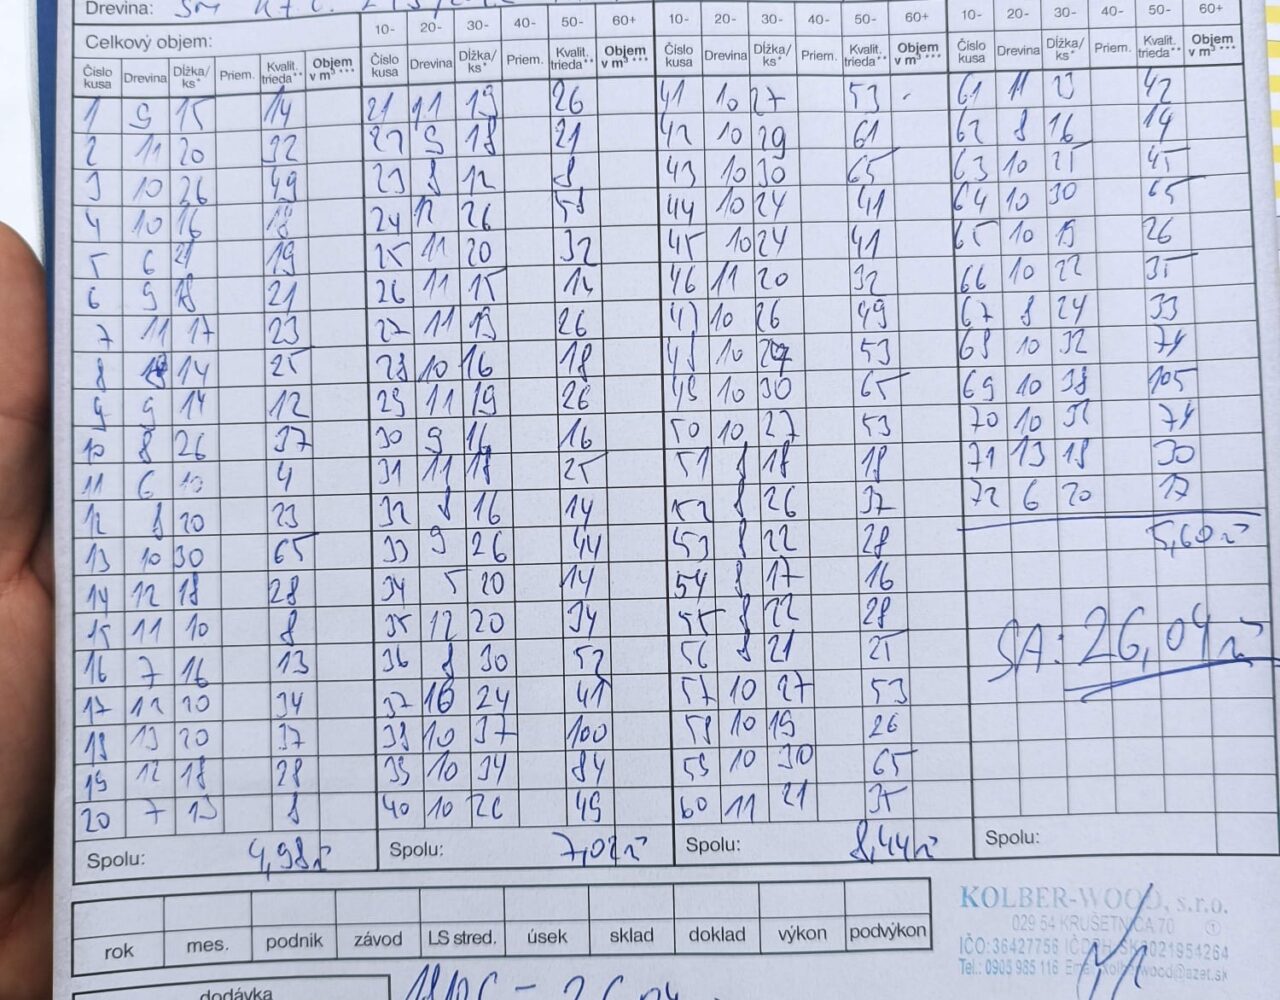 Drevina: SM
Celkový objem:
10- 20- 30- 40- 50- 60+ 10- 20- 30- 40- 50- 60+ 10- 20- 30- 40- 50- 60+
Číslo kusa Drevina Dĺžka/ks* Priem. Kvalit. trieda** Objem v m³*** Číslo kusa Drevina Dĺžka/ks* Priem. Kvalit. trieda** Objem v m³*** Číslo kusa Drevina Dĺžka/ks* Priem. Kvalit. trieda** Objem v m³*** Číslo kusa Drevina Dĺžka/ks* Priem. Kvalit. trieda** Objem v m³***
1 9 15 14 21 11 19 26 41 10 27 53 61 11 23 42
2 11 20 32 22 9 18 21 42 10 29 61 62 8 16 14
3 10 26 49 23 8 12 8 43 10 30 65 63 10 25 45
4 10 16 18 24 12 26 58 44 10 24 41 64 10 30 65
5 6 21 19 25 11 20 32 45 10 24 41 65 10 19 26
6 9 18 21 26 11 15 46 11 20 32 66 10 22 35
7 11 17 23 27 11 19 26 47 10 26 49 67 8 24 33
8 14 25 28 10 16 18 48 10 27 53 68 10 32 74
9 9 14 12 29 11 19 26 49 10 30 65 69 10 38 105
10 8 26 37 30 9 16 16 50 10 27 53 70 10 32 74
11 6 10 4 31 11 18 25 51 8 18 18 71 13 18 30
12 8 20 23 32 8 16 14 52 8 26 37 72 6 20 17
13 10 30 65 33 9 26 44 53 8 22 28 5,60 m³
14 12 18 28 34 5 20 14 54 8 17 16
15 11 10 8 35 12 20 34 55 8 22 28
16 7 16 13 36 8 30 52 56 8 21 25 SA: 26,04 m³
17 12 20 34 37 10 24 41 57 10 27 53
18 13 20 37 38 10 37 100 58 10 19 26
19 12 18 28 39 10 34 84 59 10 30 65
20 7 13 8 40 10 26 49 60 11 21 35
Spolu: 4,98 m³ Spolu: 7,02 m³ Spolu: 8,44 m³ Spolu:
rok mes. podnik závod LS stred. úsek sklad doklad výkon podvýkon
KOLBER-WOOD, s.r.o.
029 54 KRUŠETNICA 70 ①
IČO: 36427756 IČ DPH: SK2021954264
Tel.: 0905 985 116 Email: kolberwood@azet.sk
dodávka